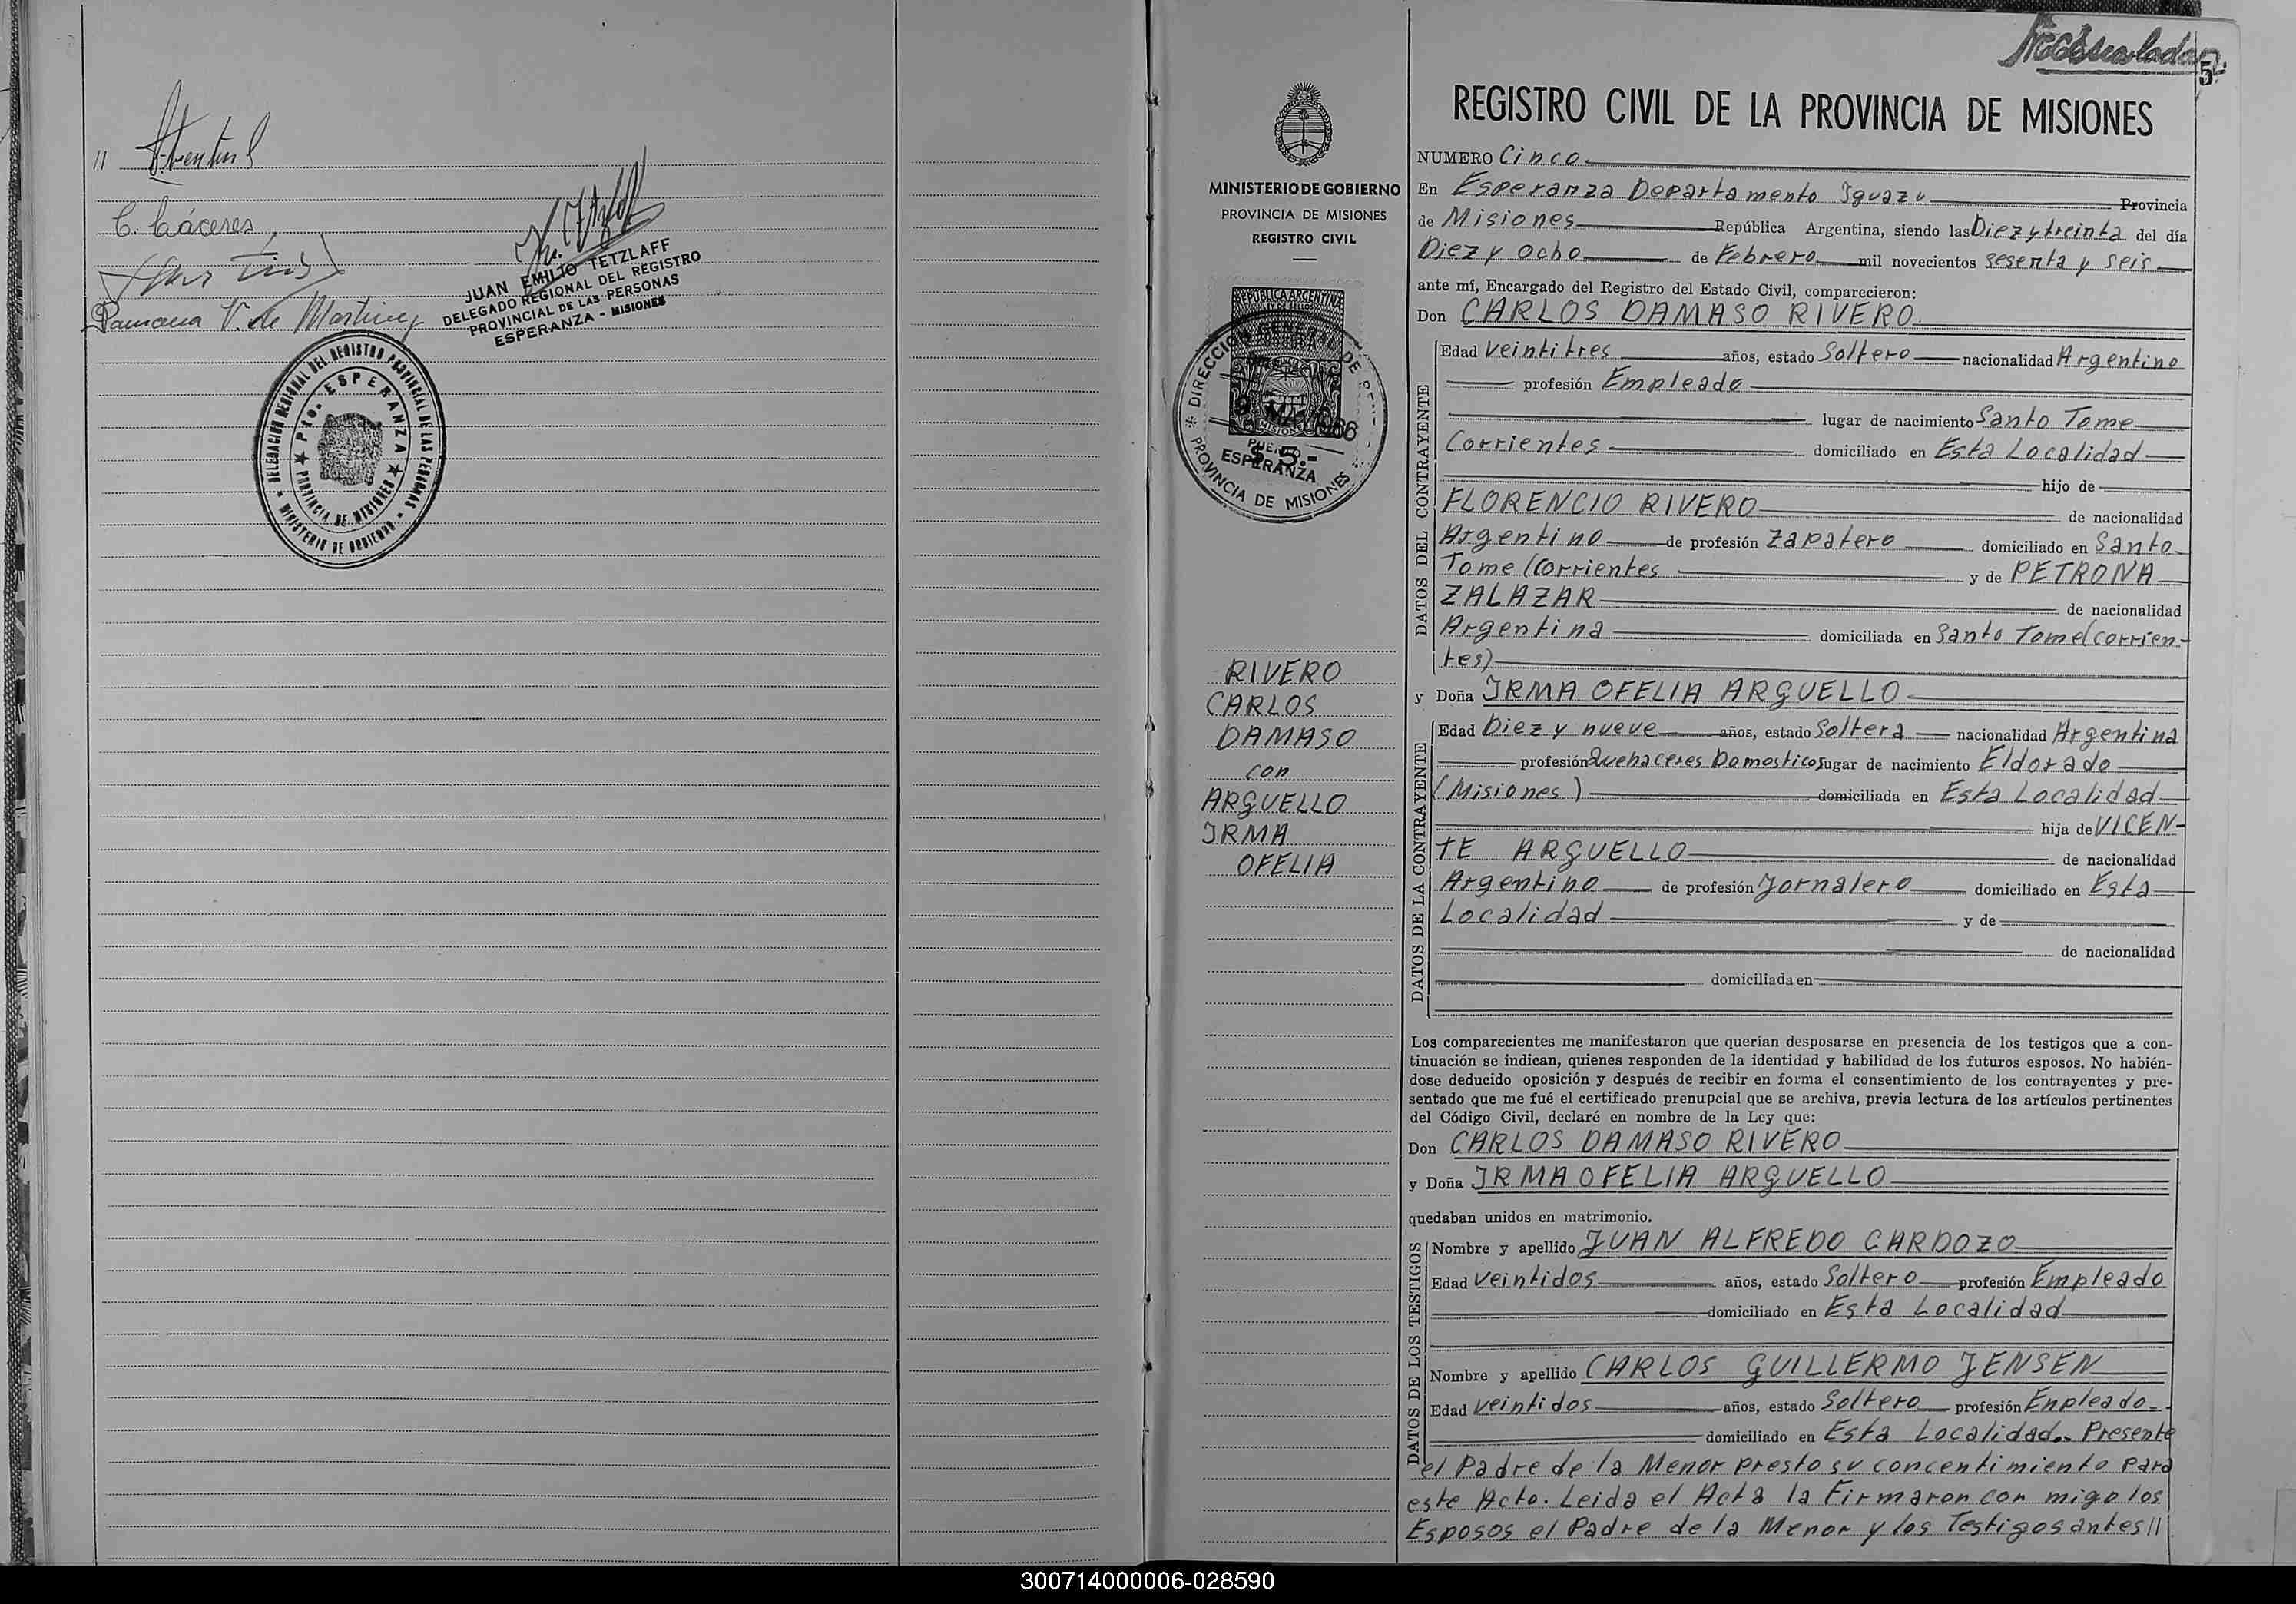 "
C. Cáceres
Ramona V. de Martinez
JUAN EMILIO TETZLAFF
DELEGADO REGIONAL DEL REGISTRO
PROVINCIAL DE LAS PERSONAS
ESPERANZA - MISIONES
DELEGACION REGIONAL DEL REGISTRO PROVINCIAL DE LAS PERSONAS
MINISTERIO DE GOBIERNO
Pto. ESPERANZA
PROVINCIA DE MISIONES
MINISTERIO DE GOBIERNO
PROVINCIA DE MISIONES
REGISTRO CIVIL
REPUBLICA ARGENTINA
LEY DE SELLOS
DIRECCION GENERAL DE
9 MAY 1966
PUERTO
$ 5.-
ESPERANZA
PROVINCIA DE MISIONES
RIVERO
CARLOS
DAMASO
con
ARGUELLO
IRMA
OFELIA
5
REGISTRO CIVIL DE LA PROVINCIA DE MISIONES
NUMERO Cinco
En Esperanza Departamento Iguazu Provincia
de Misiones República Argentina, siendo las Diez y treinta del día
Diez y ocho de Febrero mil novecientos sesenta y seis
ante mí, Encargado del Registro del Estado Civil, comparecieron:
Don CARLOS DAMASO RIVERO
DATOS DEL CONTRAYENTE
Edad veintitres años, estado Soltero nacionalidad Argentino
profesión Empleado
lugar de nacimiento Santo Tome
Corrientes domiciliado en Esta Localidad
hijo de
FLORENCIO RIVERO de nacionalidad
Argentino de profesión Zapatero domiciliado en Santo
Tome (Corrientes y de PETRONA
ZALAZAR de nacionalidad
Argentina domiciliada en Santo Tome (corrien-
tes)
y Doña IRMA OFELIA ARGUELLO
DATOS DE LA CONTRAYENTE
Edad Diez y nueve años, estado Soltera nacionalidad Argentina
profesión Quehaceres Domosticos lugar de nacimiento Eldorado
(Misiones) domiciliada en Esta Localidad
hija de VICEN-
TE ARGUELLO de nacionalidad
Argentino de profesión Jornalero domiciliado en Esta
Localidad y de
de nacionalidad
domiciliada en
Los comparecientes me manifestaron que querían desposarse en presencia de los testigos que a con-
tinuación se indican, quienes responden de la identidad y habilidad de los futuros esposos. No habién-
dose deducido oposición y después de recibir en forma el consentimiento de los contrayentes y pre-
sentado que me fué el certificado prenupcial que se archiva, previa lectura de los artículos pertinentes
del Código Civil, declaré en nombre de la Ley que:
Don CARLOS DAMASO RIVERO
y Doña IRMA OFELIA ARGUELLO
quedaban unidos en matrimonio.
DATOS DE LOS TESTIGOS
Nombre y apellido JUAN ALFREDO CARDOZO
Edad veintidos años, estado Soltero profesión Empleado
domiciliado en Esta Localidad
Nombre y apellido CARLOS GUILLERMO JENSEN
Edad veintidos años, estado Soltero profesión Enpleado
domiciliado en Esta Localidad.. Presente
el Padre de la Menor presto su concentimiento para
este Acto. Leida el Acta la Firmaron con migo los
Esposos el Padre de la Menor y los Testigos antes//
300714000006-028590